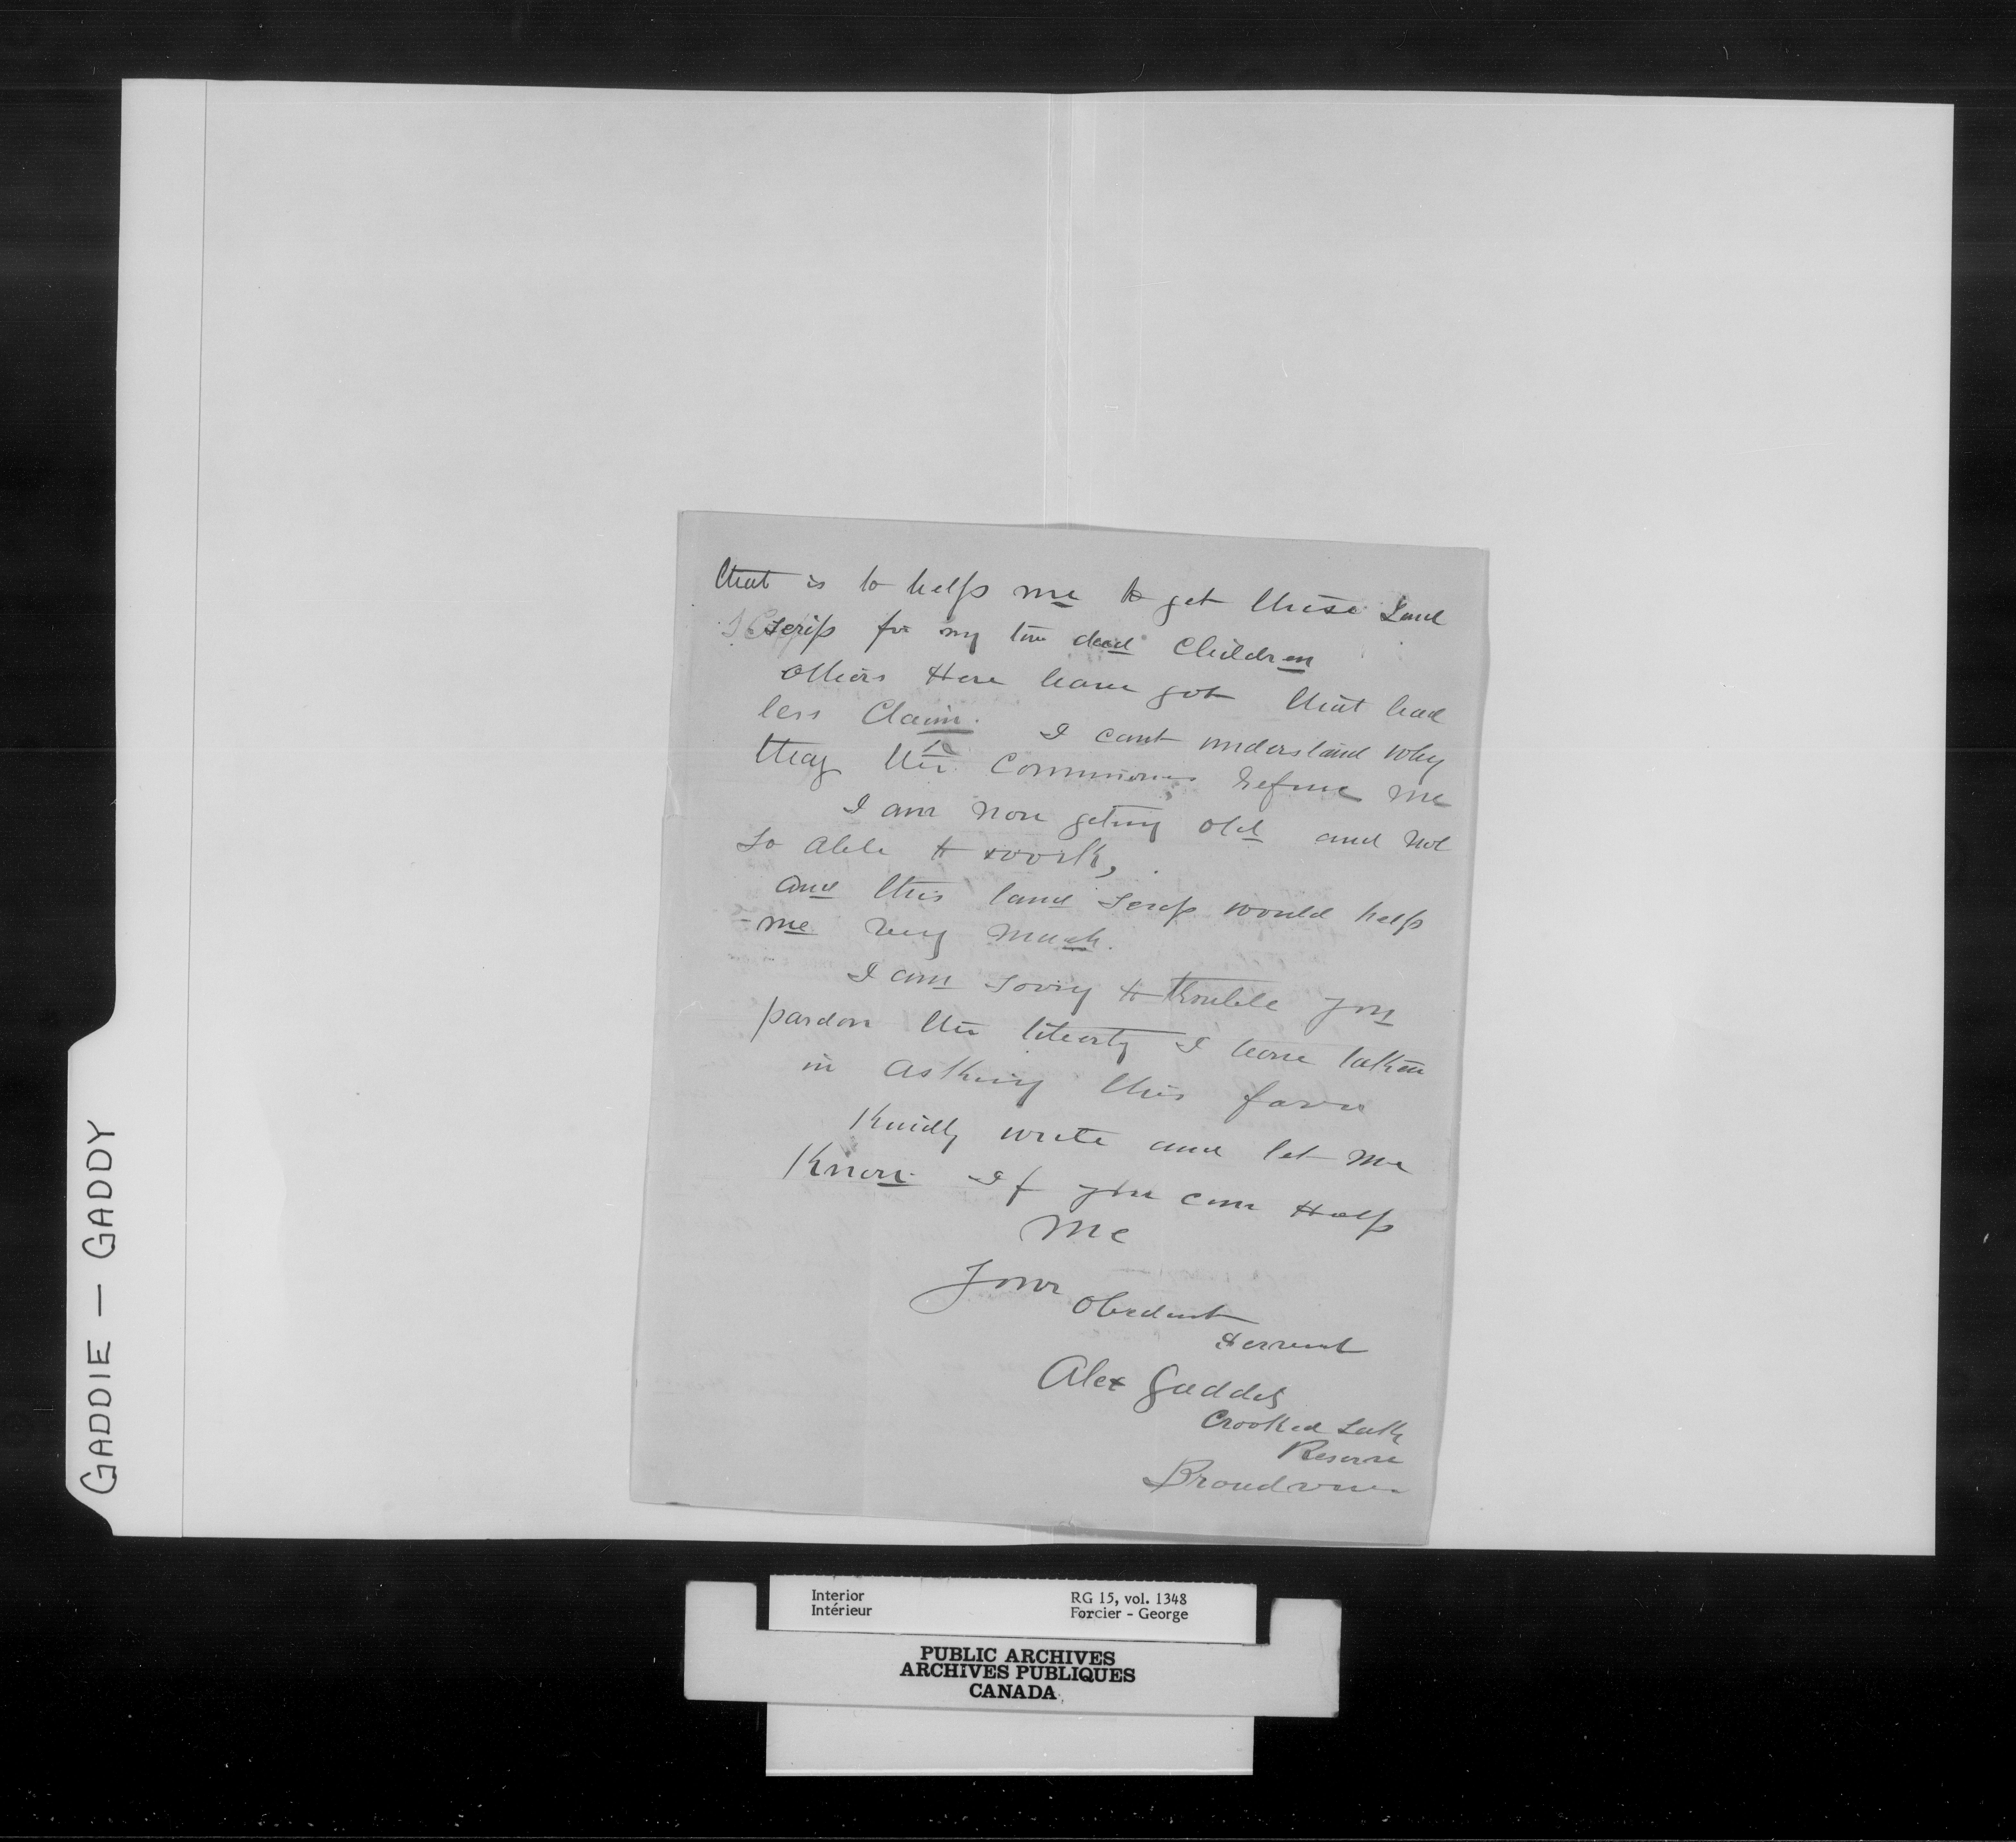 that is to help me to get these Land
scrip for my two dead Children
others Here have got that had
less Claim. I cant understand why
they the Commiones refuse me
I am now geting old and not
so able to work,
and this land scrip would help
me very much.
I am sorry to trouble you
pardon the liberty I have taken
in asking this favor
Kindly write and let me
Know If you can Help
Me
Your
Obedient
Servent
Alex Gaddey
Crooked Lake
Reserve
Broadview
GADDIE — GADDY
Interior
Intérieur
RG 15, vol. 1348
Forcier - George
PUBLIC ARCHIVES
ARCHIVES PUBLIQUES
CANADA